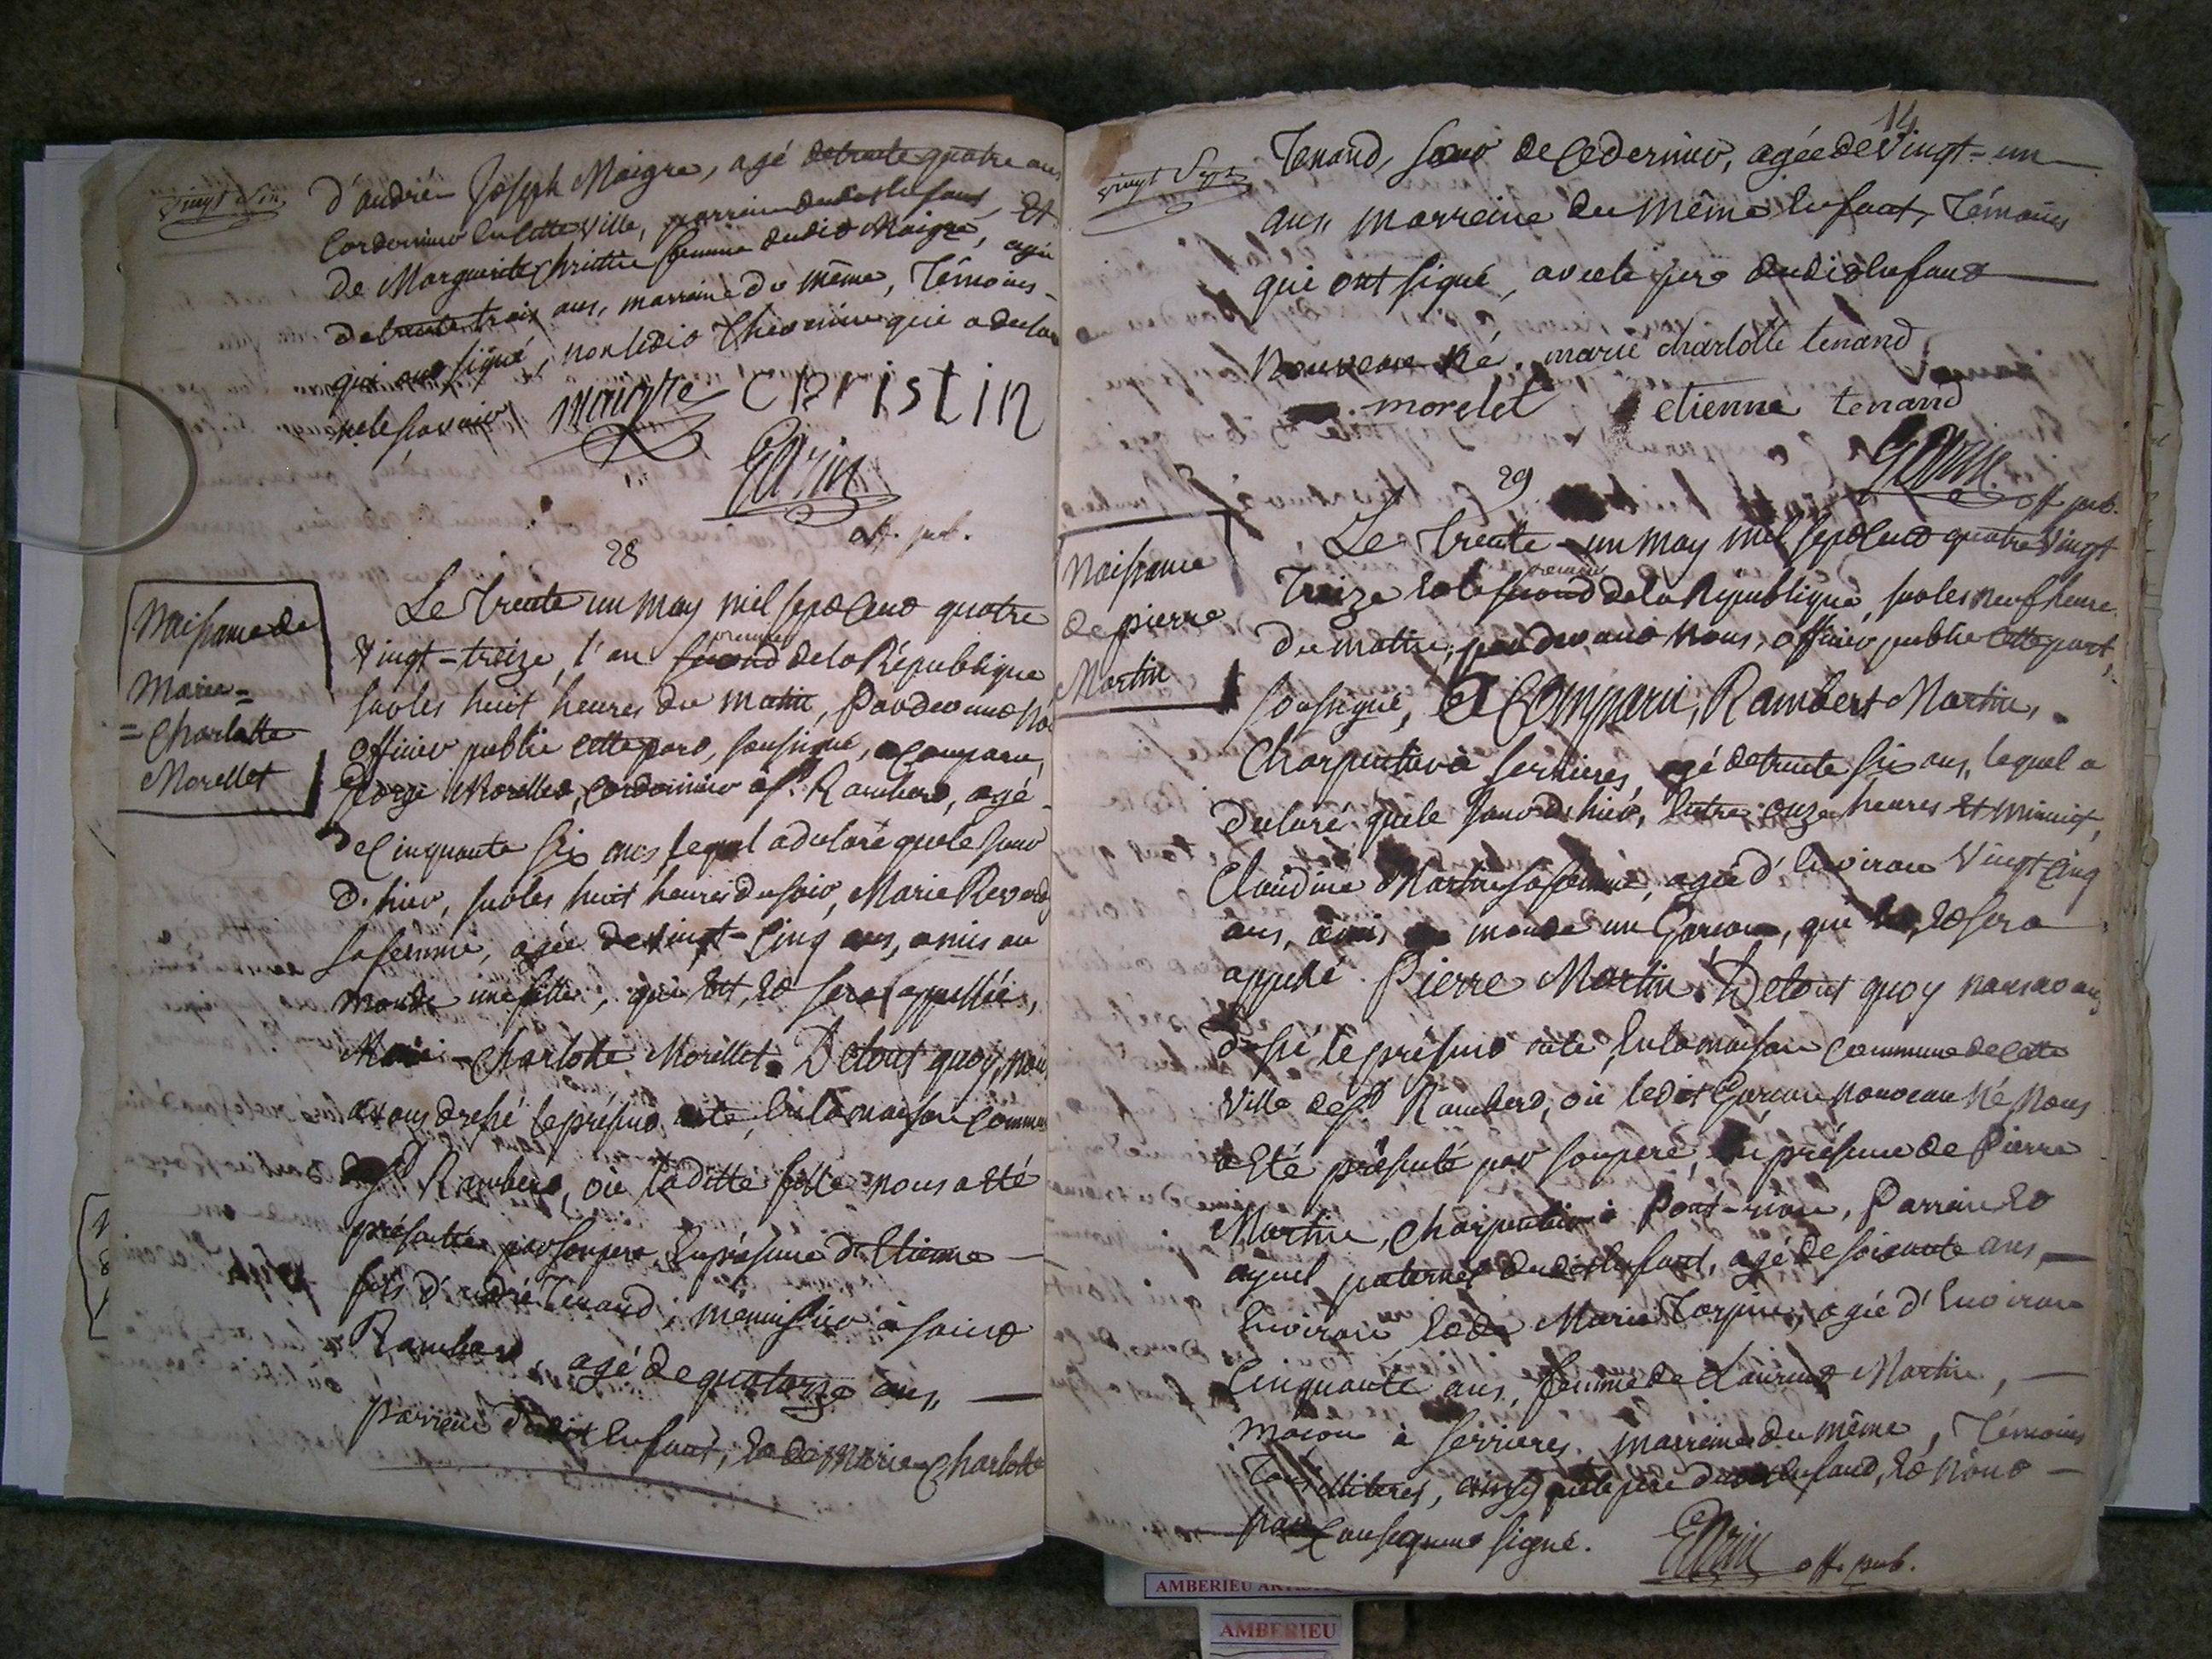 vingt six
d'andré Joseph Maigre, agé de trente quatre ans
Cordonnier en cette ville, parrain dudit enfant, et
de Marguerite Christin femme dudit Maigre, agée
de trente trois ans, marraine du même, Témoins
qui ont signé, non ledit Thevenin qui a déclaré
ne le sçavoir
maigre christin
off. pub.
28
Naissance de
Marie=
=Charlotte
Morellet
Le trente un may mil sept cent quatre
Vingt-treize, l'an second premier de la République
sur les huit heures du matin, Pardevant nous
officier public cette part, soussigné, a Comparu,
George Morellet, Cordonnier a St. Rambert, agé
de Cinquante six ans, lequel a déclaré que le jour
d'hier, sur les huit heures du soir, Marie Revord
sa femme, agée de vingt-cinq ans, a mis au
monde une fille, qui est, et sera appellée,
Marie-Charlotte Morellet. De tout quoy, nous
avons dressé le présent acte, en la maison commune
de St. Rambert, où laditte fille nous a été
présentée par son pere, en présence d'Etienne
fils d'andré Tenand, menuisier à saint
Rambert, agé de quatorze ans,
parrein dudit Enfant, et de Marie-Charlotte
14
vingt Sept
Tenand, soeur de ce dernier, agée de Vingt-un
ans, marreine du même Enfant, Témoins
qui ont signé, avec le pere dudit enfant
nouveau Né. marie charlotte tenand
morelet etienne tenand
off pub.
29
Naissance
de pierre
Martin
Le trente-un may mil sept cent quatre Vingt
Treize et le second premier de la République, sur les neuf heures
du matin, pardevant nous, officier public cette part,
soussigné, A Comparu, Rambert Martin,
Charpentier à Serrieres, agé de trente six ans, lequel a
déclaré que le jour d'hier, Entre onze heures et minuit,
Claudine Martin sa femme, agée d'Environ Vingt cinq
ans, a mis au monde un Garcon, qui est, et sera
appellé Pierre Martin. De tout quoy nous avons
dressé le présent acte, en la maison Commune de cette
Ville de St Rambert, où ledit Garcon nouveau né nous
a Eté présenté par son pere, en présence de Pierre
Martin, Charpentier à Pont-, Parrain et
ayeul paternel dudit enfant, agé de soixante ans
Environ et de Marie Torpin, agée d'Environ
Cinquante ans, femme de Laurent Martin,
macon à serrieres, marreine du même, Témoins
Tous illiteres, ainsy que le pere dudit enfant, et n'ont
par Consequent signé.
off. pub.
AMBERIEU
AMBERIEU